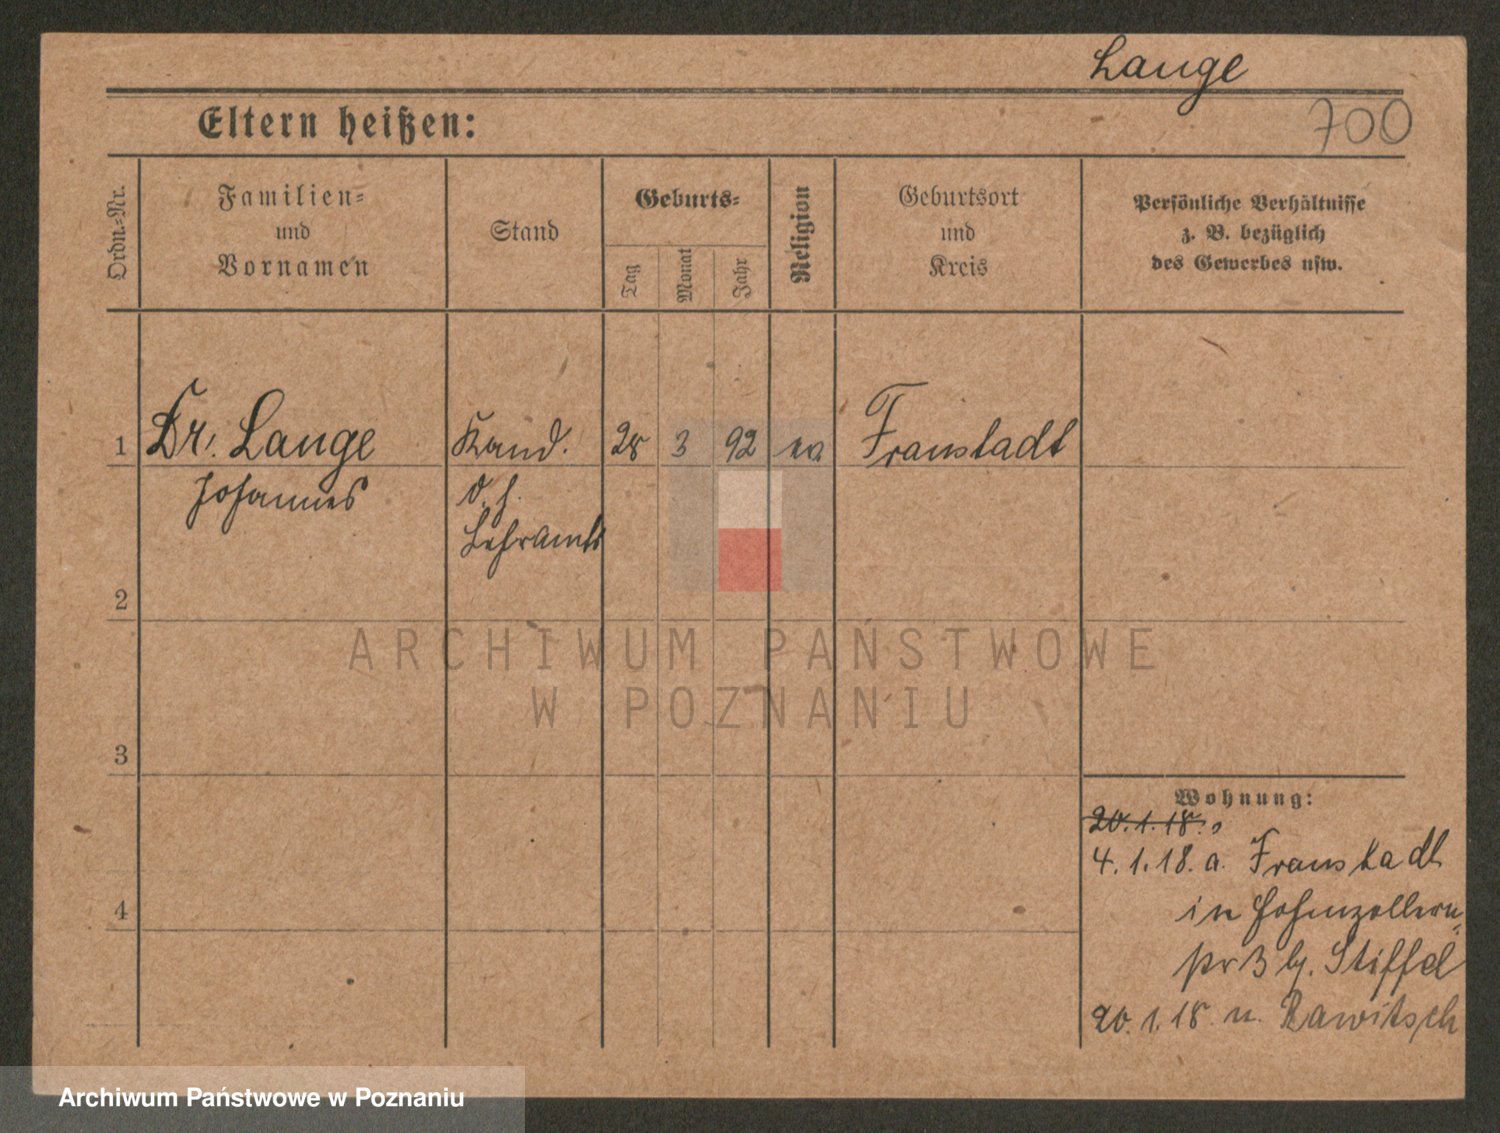 Lange
700
Eltern heißen:
Ordn.-Nr.
Familien-
und
Vornamen
Stand
Geburts-
Tag
Monat
Jahr
Religion
Geburtsort
und
Kreis
Persönliche Verhältnisse
z. B. bezüglich
des Gewerbes usw.
1 Dr. Lange Kand. 28 3 92 ev Fraustadt
Johannes d. h.
Lehramts
2
ARCHIWUM PAŃSTWOWE
W POZNANIU
3
Wohnung:
20.1.18.
4.1.18. a. Fraustadt
in Hohenzollern
str 3 b. Stiffel
4
20.1.18 n. Rawitsch
Archiwum Państwowe w Poznaniu